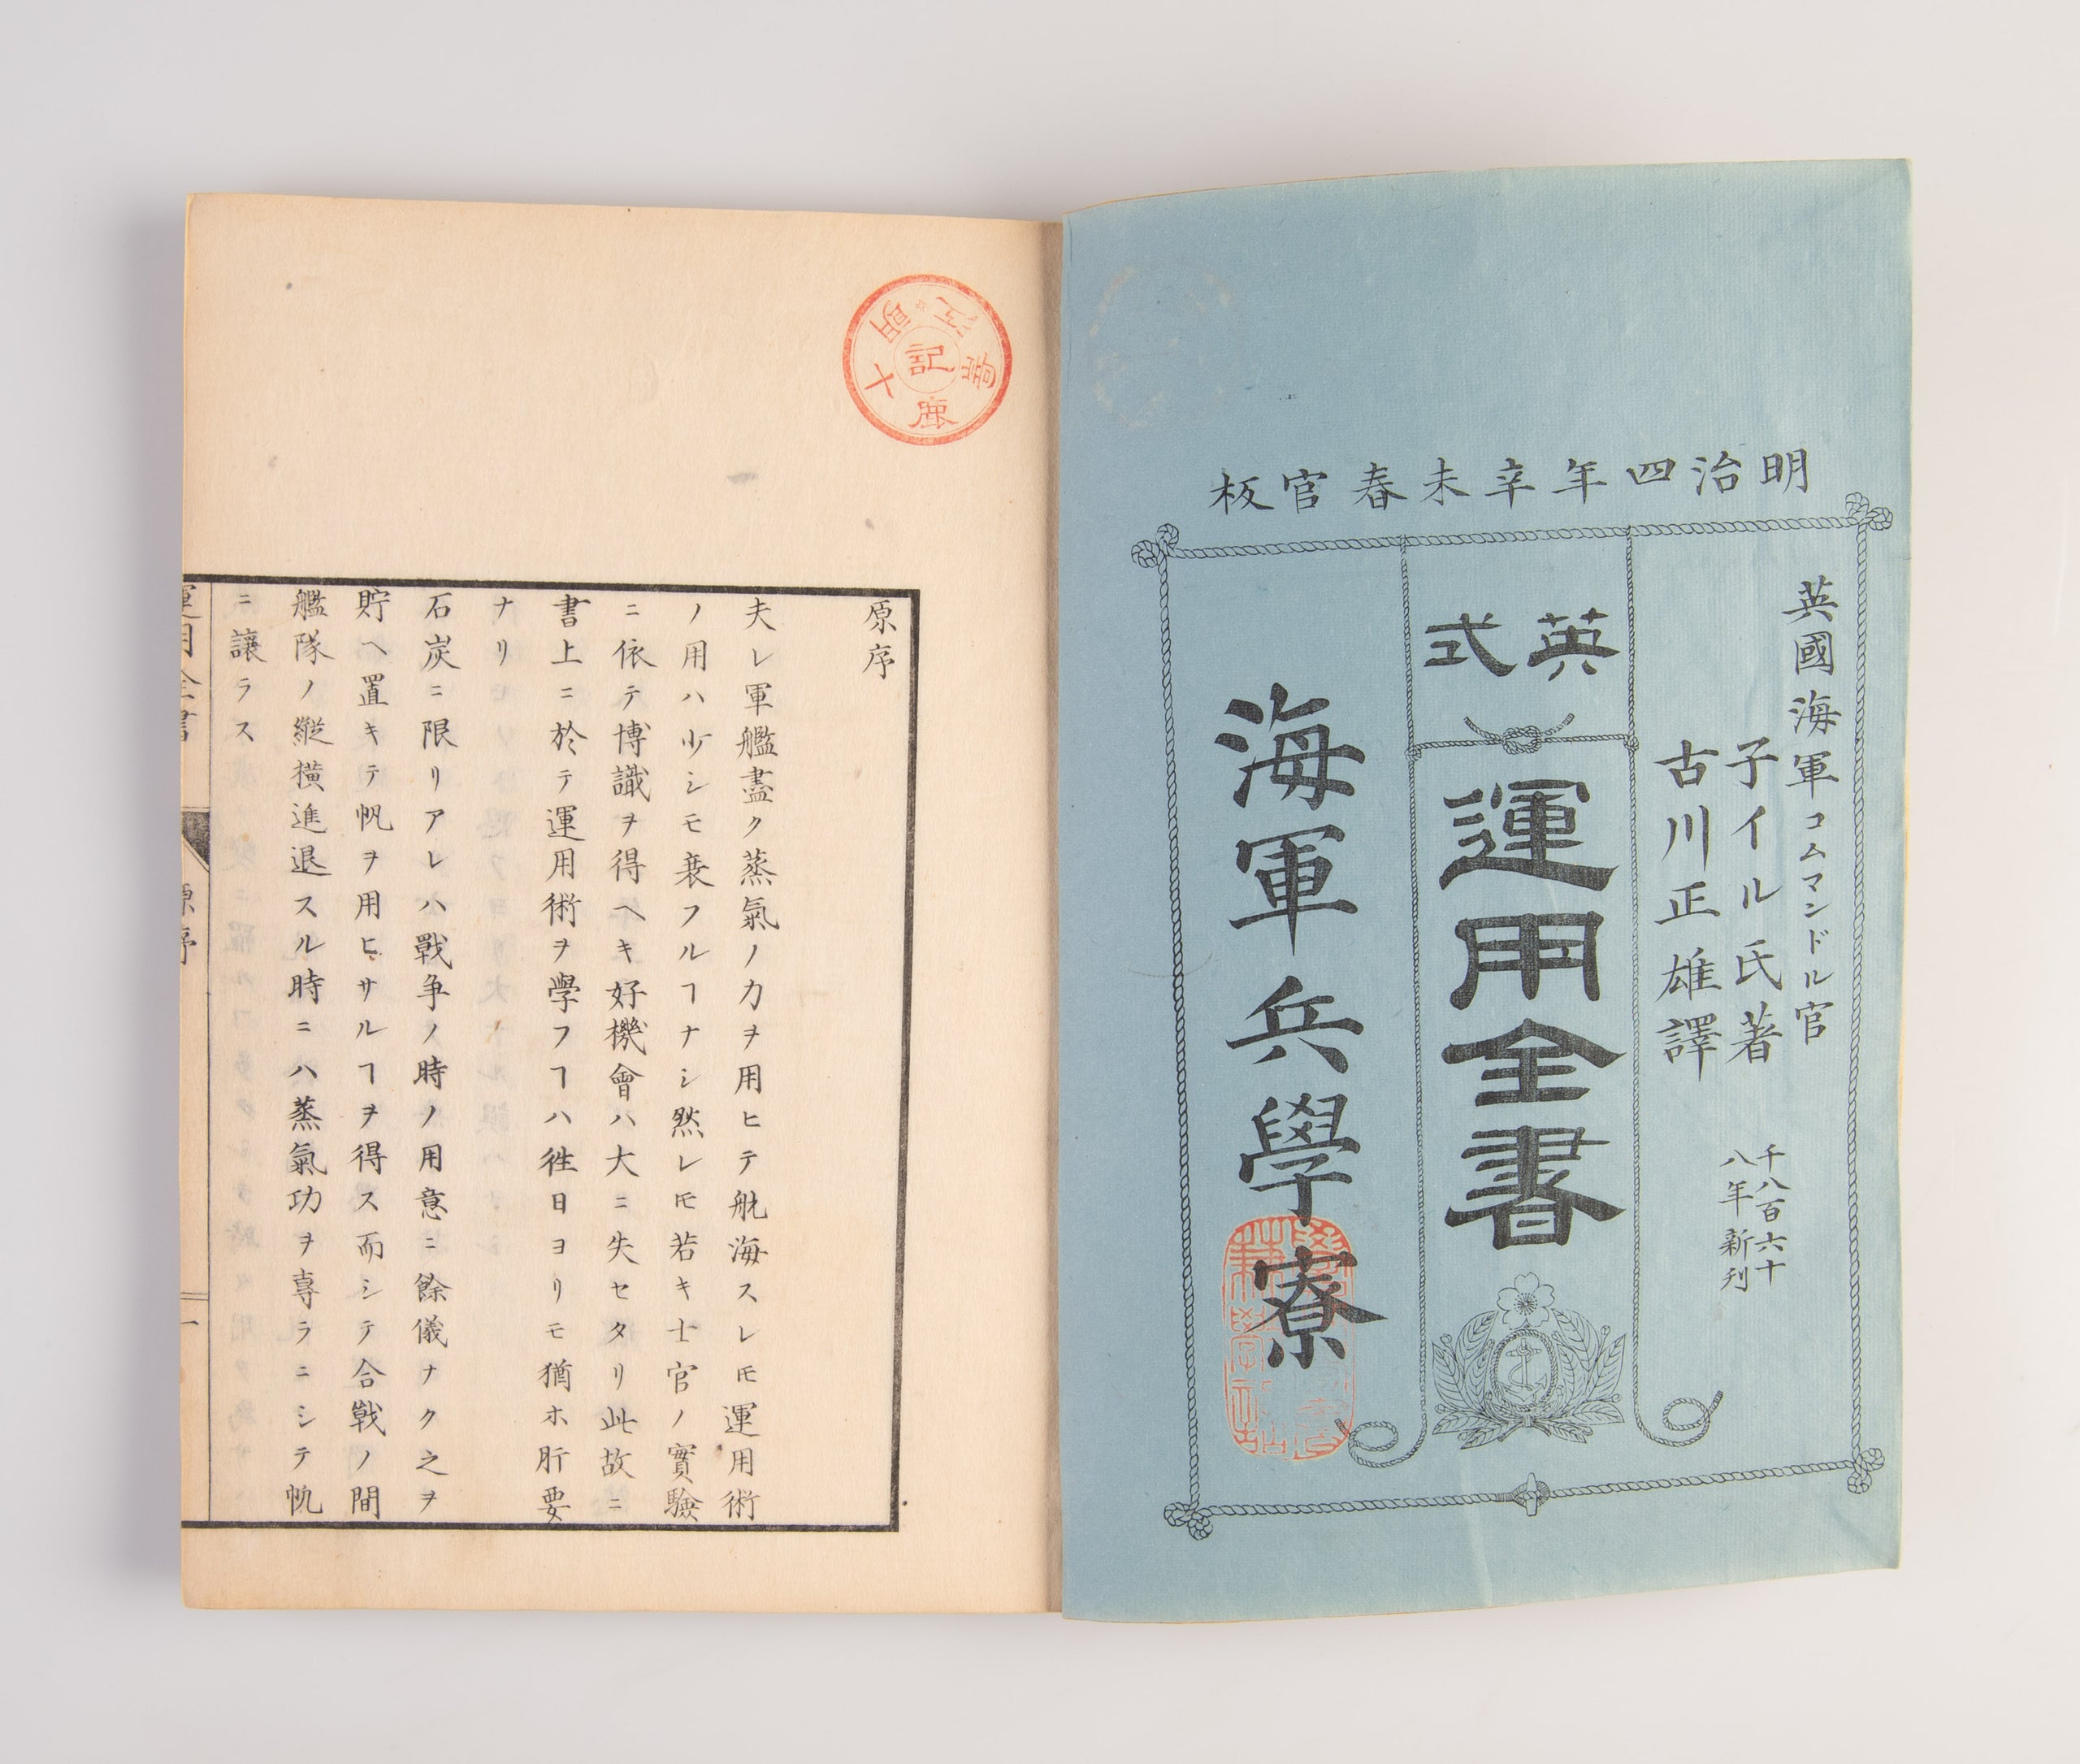 明治四年辛未春官板
英國海軍コムマンドル官
子イル氏著
古川正雄譯
千八百六十
八年新刊
英式
運用全書
海軍兵學寮
原序
夫レ軍艦盡ク蒸氣ノ力ヲ用ヒテ航海スレ𪜈運用術
ノ用ハ少シモ衰フルヿナシ然レ𪜈若キ士官ノ實驗
ニ依テ博識ヲ得ヘキ好機會ハ大ニ失セタリ此故ニ
書上ニ於テ運用術ヲ學フヿハ徃日ヨリモ猶ホ肝要
ナリ
石炭ニ限リアレハ戰争ノ時ノ用意ニ餘儀ナク之ヲ
貯ヘ置キテ帆ヲ用ヒサルヿヲ得ス而シテ合戰ノ間
艦隊ノ縱横進退スル時ニハ蒸氣功ヲ専ラニシテ帆
ニ讓ラス
運用全書
原序
一
記